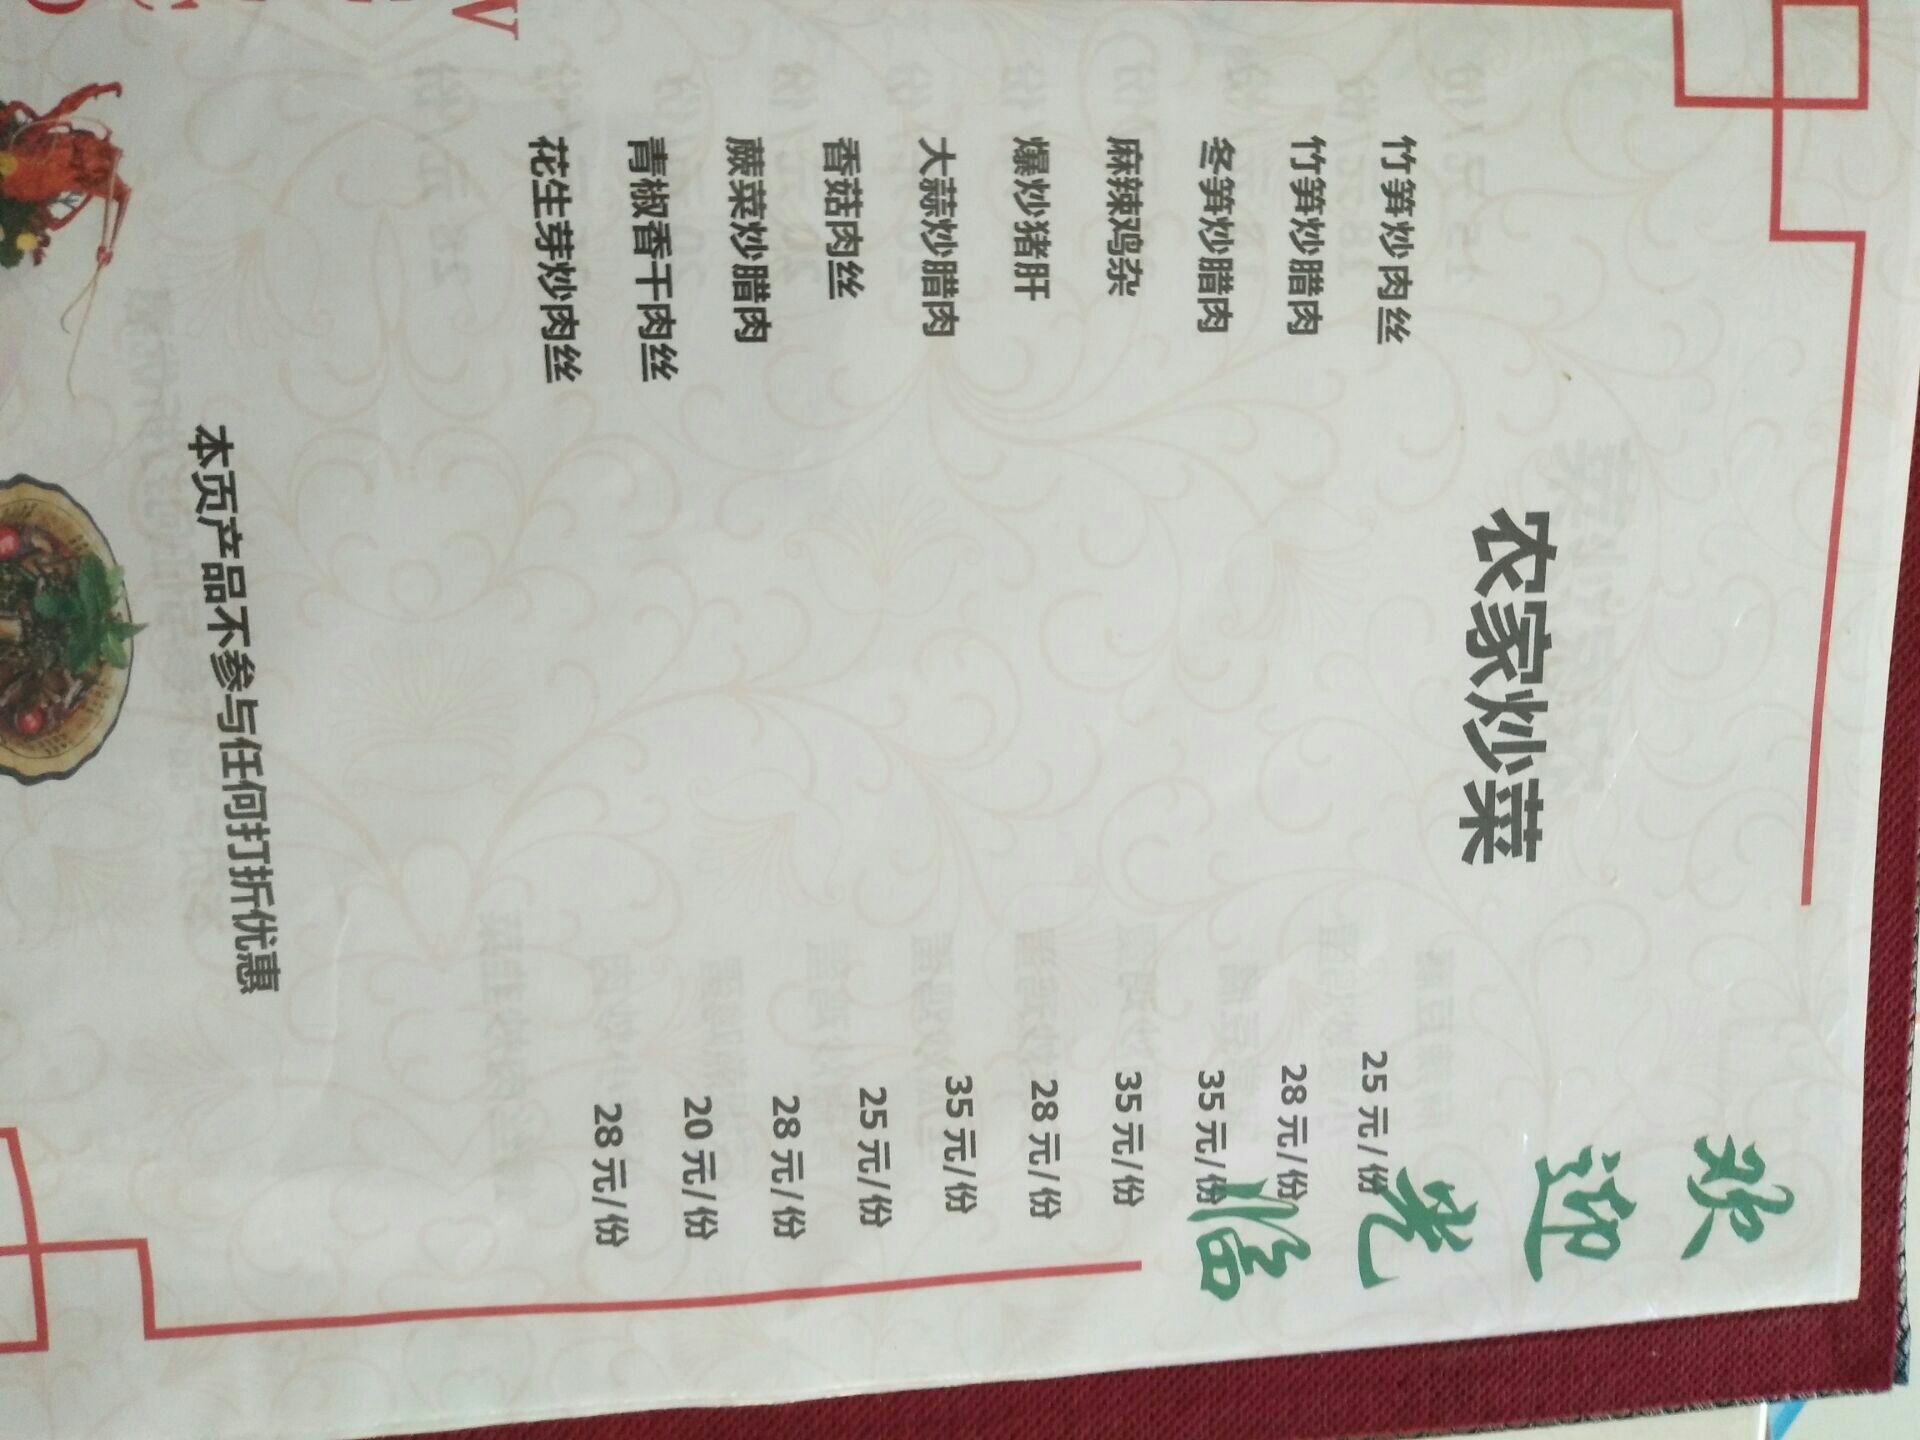 欢迎光临
农家炒菜
竹笋炒肉丝 25元/份
竹笋炒腊肉 28元/份
冬笋炒腊肉 35元/份
麻辣鸡杂 35元/份
爆炒猪肝 28元/份
大蒜炒腊肉 35元/份
香菇肉丝 25元/份
蕨菜炒腊肉 28元/份
青椒香干肉丝 20元/份
花生芽炒肉丝 28元/份
本页产品不参与任何打折优惠